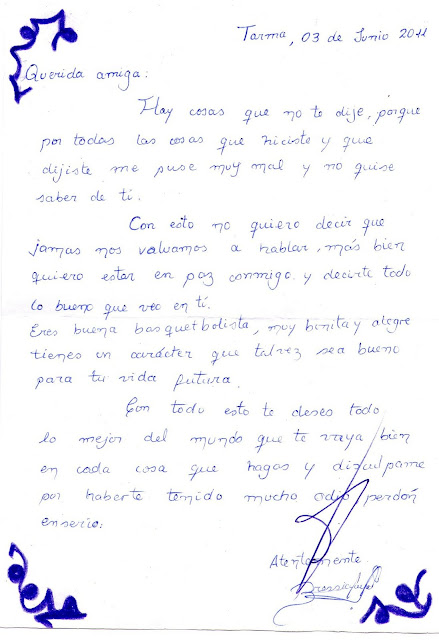 Tarma, 03 de Junio 2011
Querida amiga:
Hay cosas que no te dije, porque
por todas las cosas que hiciste y que
dijiste me puse muy mal y no quise
saber de ti.
Con esto no quiero decir que
jamas nos valvamos a hablar, más bien
quiero estar en paz conmigo y decirte todo
lo bueno que veo en tí.
Eres buena basquetbolista, muy bonita y alegre
tienes un carácter que talvez sea bueno
para tu vida futura.
Con todo esto te deseo todo
lo mejor del mundo que te vaya bien
en cada cosa que hagas y disculpame
por haberte temido mucho odio perdón
enserio.
Atentamente.